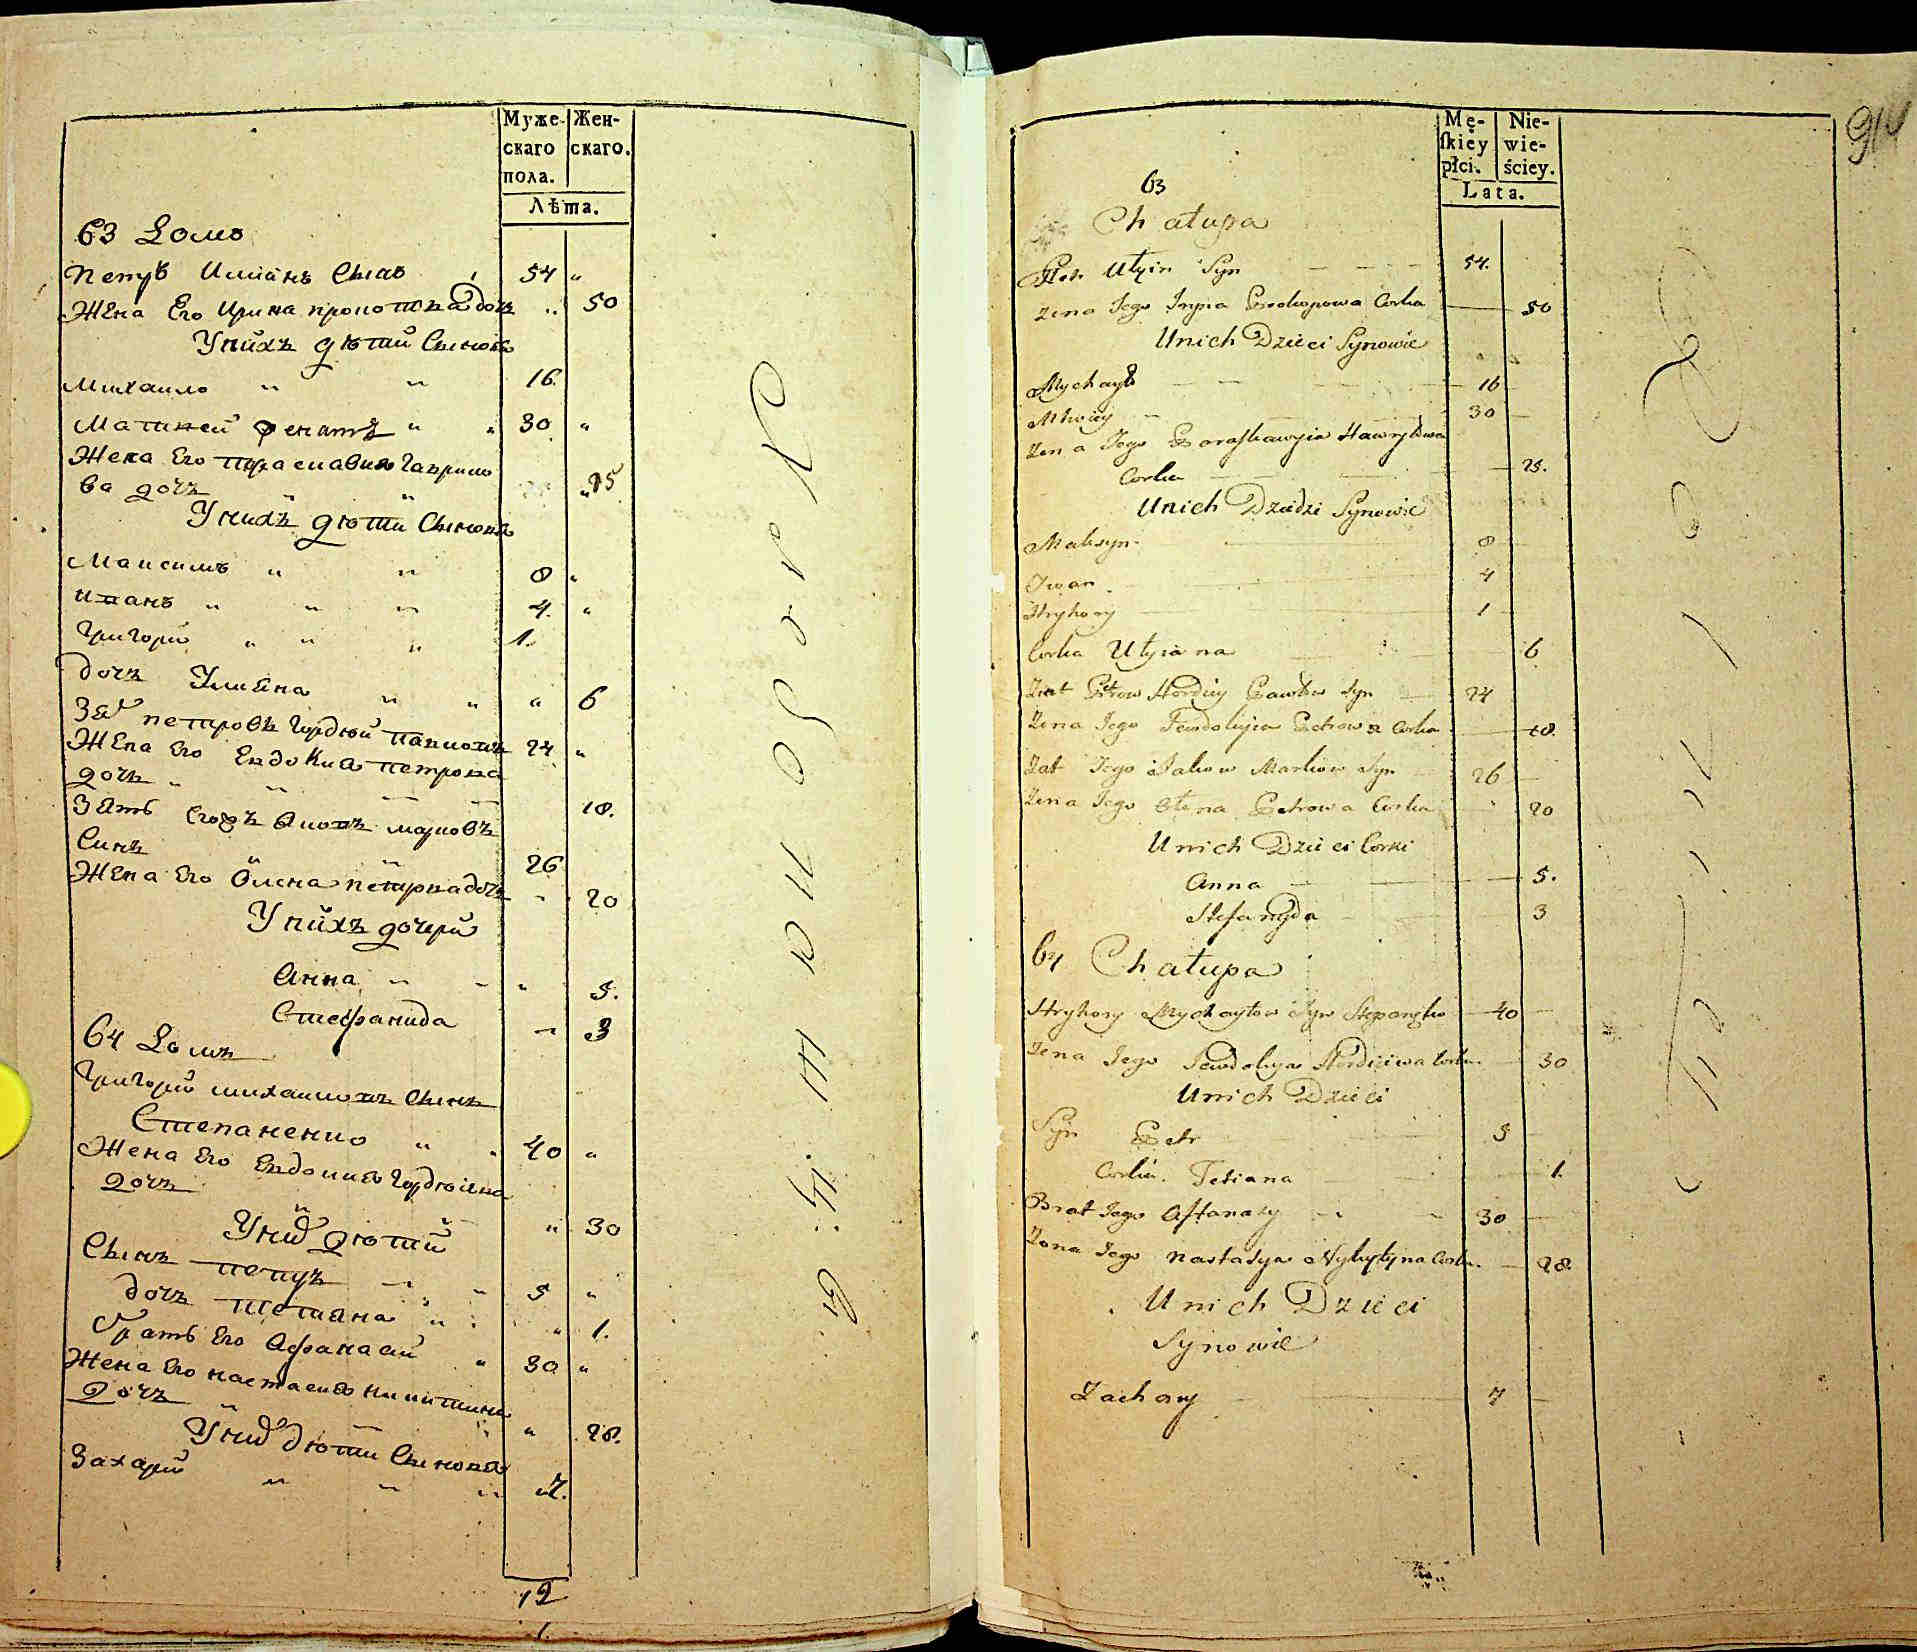 Муже- Жен-
скаго скаго.
пола.
Лѣта.
63 Домъ
Петръ Улиянъ Сынъ 54 "
Жена Его Ирина дочь " 50
Унихъ дѣти Сыновя
Михаило " " 16.
Матвей женатъ " " 30 "
Жена Его Параскавия Гаврило
ва дочь " " 25
Унихъ дѣти Сыновя
Максимъ " " 8 "
Иванъ " " " 4. "
Григорій " " " 1.
дочь Улияна " " " 6
Зят Петровъ Гордѣй 24. "
Жена Его Евдокия Петрова
дочь " " 18.
Зять Яковъ Марковъ
Синъ 26
Жена Его Олена Петрова дочь " 20
Унихъ дочери
Анна " " " 5.
Стефанида " 3
64 Домъ
Григорій Михаиловъ Сынъ
Степаненко " " 40 "
Жена Его Евдокия Гордѣива
дочь " 30
Уних дѣтий
Сынъ Петръ " " 5 "
дочь Тетияна " " " 1.
Братъ Его Афанасий " 30 "
Жена Его Настасия Никитина
дочь " " 28.
Уних дѣти Сыновя
Захарий " " " 7.
12
Mę- Nie-
ſkiey wie-
płci. ściey.
Lata.
91
63
Chałupa
Petr Ułyin Syn 54.
Zena Jego Corka 50
Unich Dzieci Synowie
Mychayło 16
30
Zena Jego Paraskawyia Hawryłowa
Corka 25.
Unich Dzieci Synowie
Maksym 8
Iwan 4
Hryhory 1
Corka Ułyiana 6
Ziat Petrow Hordiiy Pawłow Syn 24
Zena Jego Jewdokyia Petrowa Corka 18.
Zat Jego Jakow Markow Syn 26
Zena Jego Ołena Petrowa Corka 20
Unich Dzieci Corki
Anna 5.
Stefanyda 3
64 Chałupa
Hryhory Mychayłow Syn Stepanenko 40
Zena Jego Jewdokyia Hordiiwa Corka 30
Unich Dzieci
Syn Petr 5
Corka Tetiana 1.
Brat Jego Aftanasy 30
Zona Jego Nastasya Nykytyna Corka 28.
Unich Dzieci
Synowie
Zachary 7